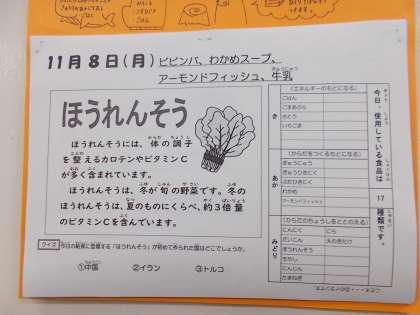 11月8日(月) ビビンバ、わかめスープ、
アーモンドフィッシュ、牛乳
ほうれんそう
ほうれんそうには、体の調子
を整えるカロテンやビタミンC
が多く含まれています。
ほうれんそうは、冬が旬の野菜です。冬の
ほうれんそうは、夏のものにくらべ、約3倍量
のビタミンCを含んでいます。
クイズ 今日の給食に登場する「ほうれんそう」が初めて作られた国はどこでしょうか。
①中国 ②イラン ③トルコ
今日、使用している食品は17種類です。
き
(エネルギーのもとになる)
ごはん
ごまあぶら
さとう
いちごまめ
あか
(からだをつくるもとになる)
ぎゅうにゅう
ぎゅうひきにく
ぶたひきにく
わかめ
アーモンドフィッシュ
みどり
(からだのちょうしをととのえる)
にんにく にら
だいこん えのきたけ
ほうれんそう
もやし
にんじん
たまねぎ